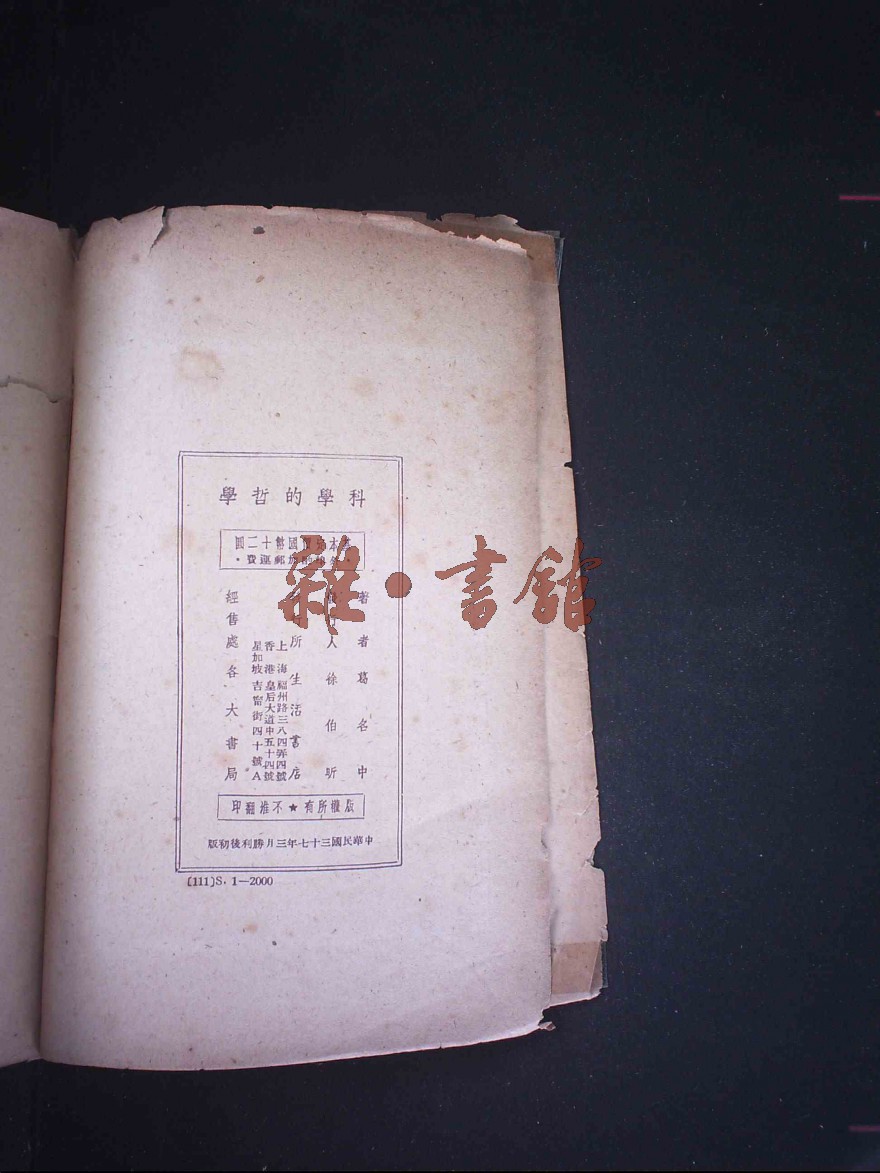 科學的哲學
本定價國幣十二圓
加郵運費·
著者 葛名中
人 徐伯昕
所 生活書店
上海福州路三八四弄四號
香港皇后大道中五十四號
星加坡吉甯街四十號A
經售處 各大書局
版權所有★不准翻印
中華民國三十七年三月勝利後初版
(111)S. 1—2000
雜·書館